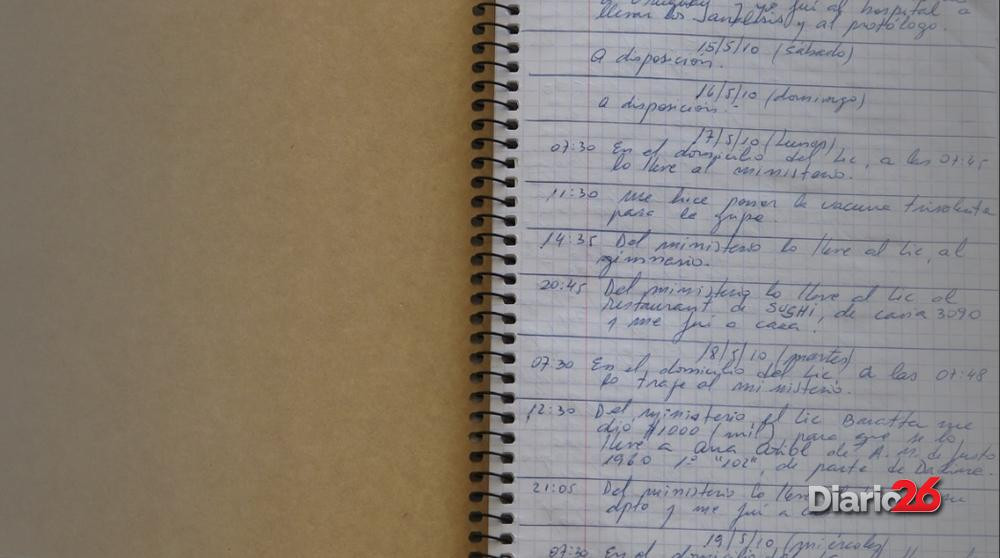 a Uruguay y yo fuí al hospital a
llevar los análisis y al protólogo.
15/5/10 (sábado)
A disposición.
16/5/10 (domingo)
A disposición.-
17/5/10 (Lunes)
07:30 En el domicilio del Lic, a las 07:45
lo lleve al ministerio.
11:30 me hice poner la vacuna trivalente
para la gripe.
14:35 Del ministerio lo lleve al Lic, al
gimnasio.
20:45 Del ministerio lo lleve al Lic al
restaurant de SUSHI, de 3090
y me fuí a casa.
18/5/10 (martes)
07:30 En el domicilio del Lic, a las 07:48
lo traje al ministerio.
12:30 Del ministerio, el Lic Baratta me
dió $1000 (mil) para que se lo
lleve a Ana de A. M. de Justo
1960 1º "102", de parte de
21:05 Del ministerio lo lleve
dpto y me fuí a
19/5/10 (miércoles)
07:30 En el domicilio
Diario26